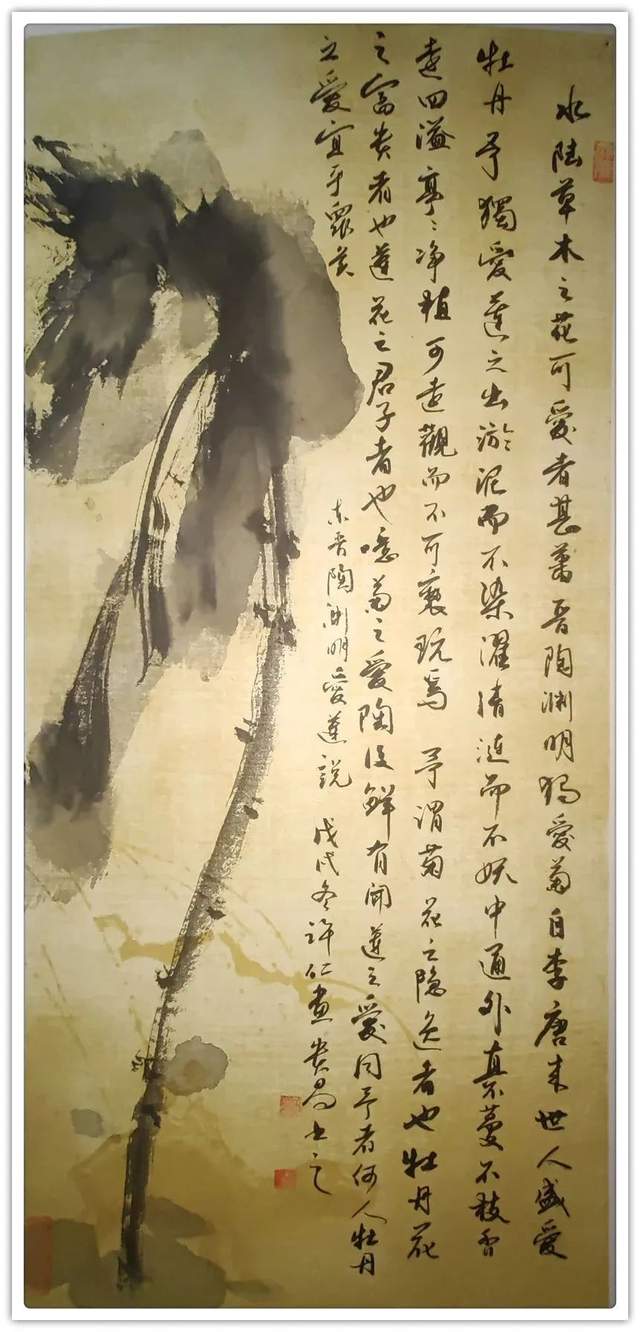 水陸草木之花可愛者甚蕃晋陶渊明独愛菊自李唐来世人盛愛
牡丹予獨愛蓮之出淤泥而不染濯清漣而不妖中通外直不蔓不枝香
遠四溢亭〻净植可遠觀而不可褻玩焉 予谓菊花之隐逸者也牡丹花
之富贵者也蓮花之君子者也噫菊之愛陶後鲜有闻蓮之愛同予者何人牡丹
之愛宜乎衆矣
东晋陶渊明愛蓮説 戊戌冬许仁画贵昌书之